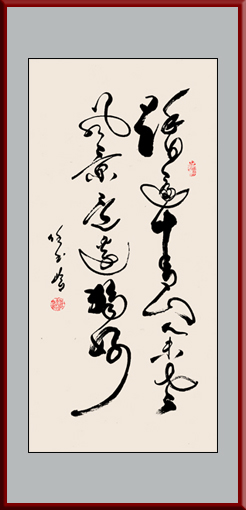 踏遍青山人未老
风景这边獨好